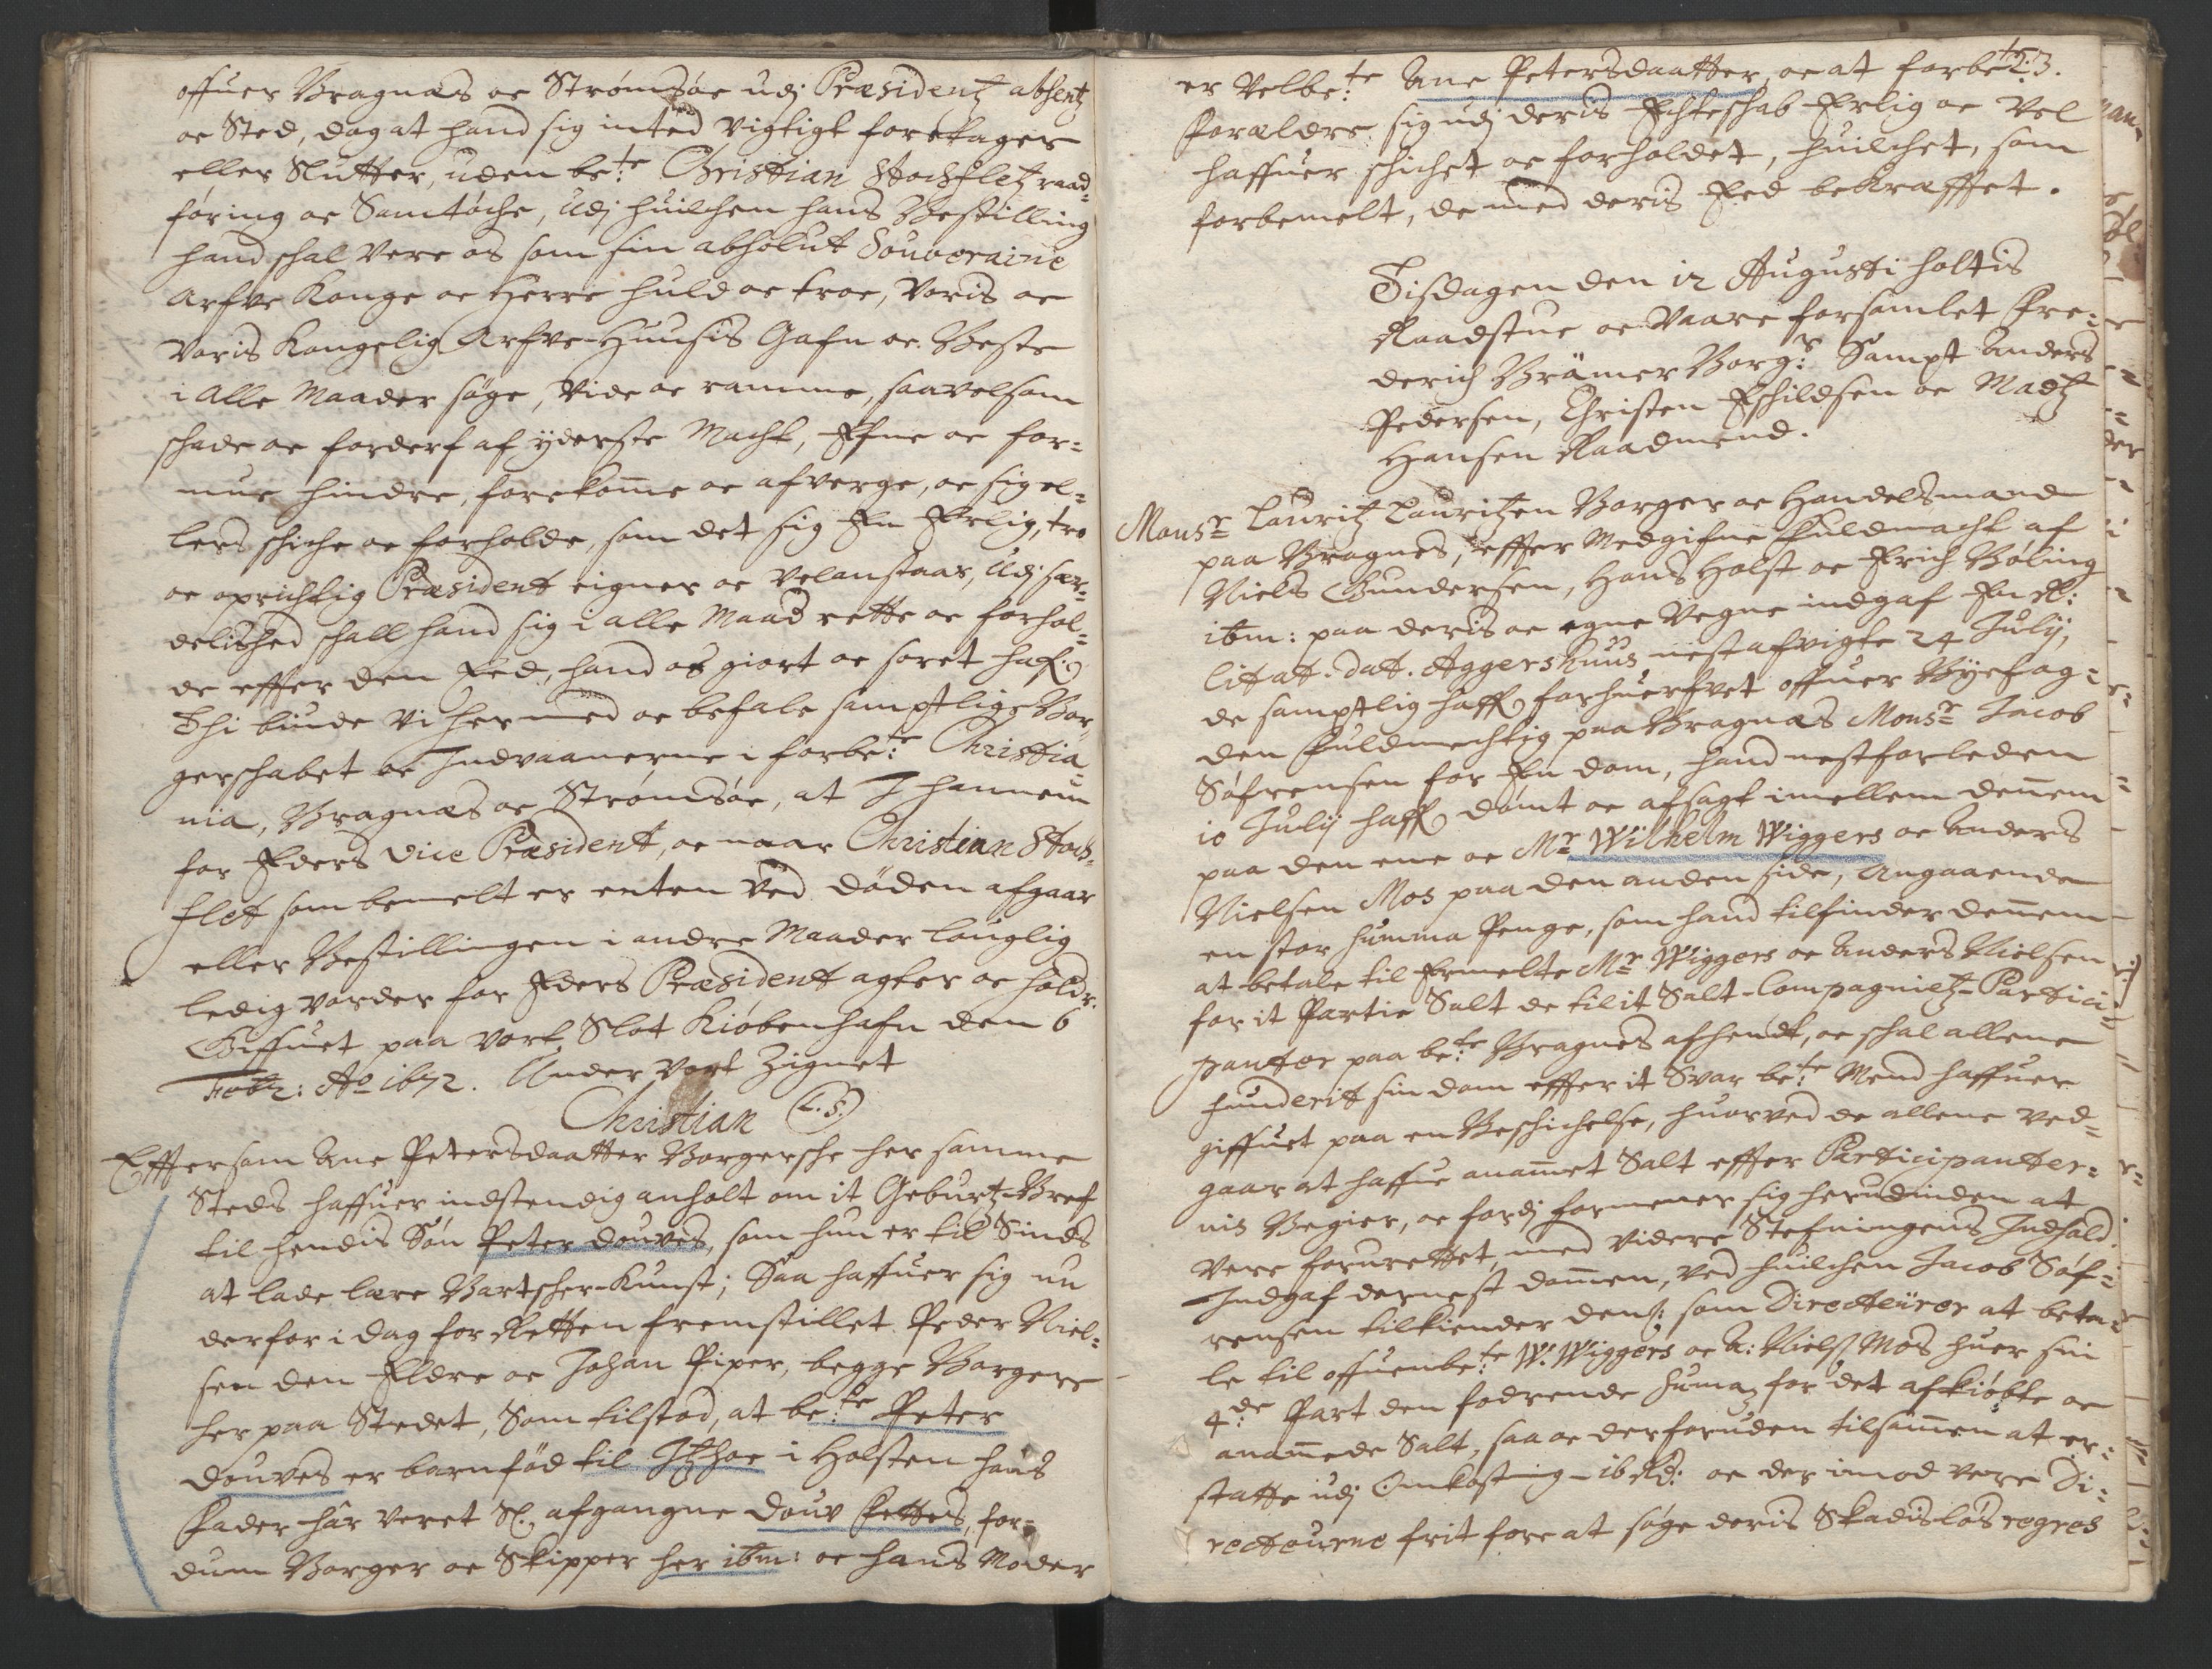 offuer Bragnæs oc Strømsøe udj Præsidentz absentz
oc Sted, dog at hand sig inted vigtigt foretager
eller Slutter, uden be:te Christian Stochfletz raad-
føring oc Samtöche, Udj huilchen hans Bestilling
hand schal vere os som sin absolut Souveraine
Arfve Konge oc Herre huld oc troe, Voris oc
Voris Kongelig Arfve-Huusis Gafn oc Beste
i alle Maader søge, Vide oc ramme, saavelsom
schade oc forderf af yderste Macht, Efne oc for=
mue hindre, forekomme oc afverge, oc sig el=
lers schiche oc forholde, som det sig En Erlig, tro
oc oprichtig Præsident eigner oc velanstaar, Udj sær=
delished schall hand sig i alle Maad rette oc forhol=
de effter den Eed, hand os giort oc soret haf:
Thi biude Vi hermed oc befale samptlige Bor,
gerschabet oc Indvaanerne i forbe:te Christia=
nia, Bragnæs oc Strømsøe, at I hannem
for Eders Vice Præsident, oc naar Christian Stoch=
flet som bemelt er enten ved döden afgaar
eller Bestillingen i andre Maader louglig
ledig vorder for Eders Præsident agter oc holdr.
Giffuet paa vort Slot Kiøbenhafn den 6
Febr: Ao 1672. Under Vort Zignet
Christian (L.S.)
Efftersom Ane Petersdaatter Borgersche her samme
Steds haffuer indstendig anholt om it Geburtz-Bref
til hendis Søn Peter Douves, som hun er til Sinds
at lade lære Bartscher-Kunst; Saa haffuer sig nu
derfor i dag for Retten fremstillet Peder Niel=
sen den Eldre oc Johan Piper, begge Borgere
her paa Stedet, Som tilstod, at be:te Peter
Douves er barnfød til Itzhoe i Holsten hans
Fader har veret Sl. afgangne Douv Petters, for=
dum Borger oc Skipper her ibm: oc hans Moder
153.
er Velbe:te Ane Petersdaatter, oc at forbe:te
Forældre sig udj deris Echteschab Erlig oc Vel
haffuer schichet oc forholdet, huilchet, som
forbemelt, de med deris Eed bekræfftet.
Tisdagen den 12 Augusti holtis
Raadstue oc Vaare forsamlet Fre=
derich Brämer Borg:r Sampt Anders
Pedersen, Christen Eschildsen oc Madtz
Hansen Raadmend.
Monsr Lauritz Lauritzen Borger oc Handelsmand
paa Bragnes, effter Medgifne Fuldmacht af
Niels Gundersen, Hans Holst oc Erich Bøling
ibm: paa deris oc egne Vegne indgaf En R:
Citat. dat. Aggershuus nest afvigte 24 Julij,
de samptlig haffr forhuerfvet offuer Byefog=
den Fuldmechtig paa Bragnæs Monsr Jacob
Søfrensen for En dom, hand nestforleden
10 Julij haffr dömt oc afsagt imellem dennem
paa den ene oc Mr Wilhelm Wiggers oc Anders
Nielsen Mos paa den anden side, Angaaende
en stor Summa Penge, som hand tilfinder dennem
at betale til Ermelte Mr Wiggers oc Anders Nielsen
for it Partie Salt de til it Salt-Compagnietz-Partici=
panter paa be:te Bragnes afhendt, oc schal allene
funderit sin dom effter it Svar be:te Mend haffuer
giffuet paa en Beschichelse, huorved de allene ved=
gaar at haffue anammet Salt effter Participanter=
nis Begier, oc fordj formener sig herudinden at
vere forurettet, med videre Stefningens Indhold.
Indgaf dernest dommen, ved huilchen Jacob Søf=
rensen tilkiender dens: som Directeürer at beta=
le til offuenbe:te W. Wiggers oc A: Niels: Mos huer sin
4de Part den fodrende Suma, for det afkiøbte oc
anammede Salt, saa oc derforuden tilsammen at er=
statte udj Omkostning 16 Rd: oc der imod vere Di=
recteurne frit fore at søge deris Skadisløs regres